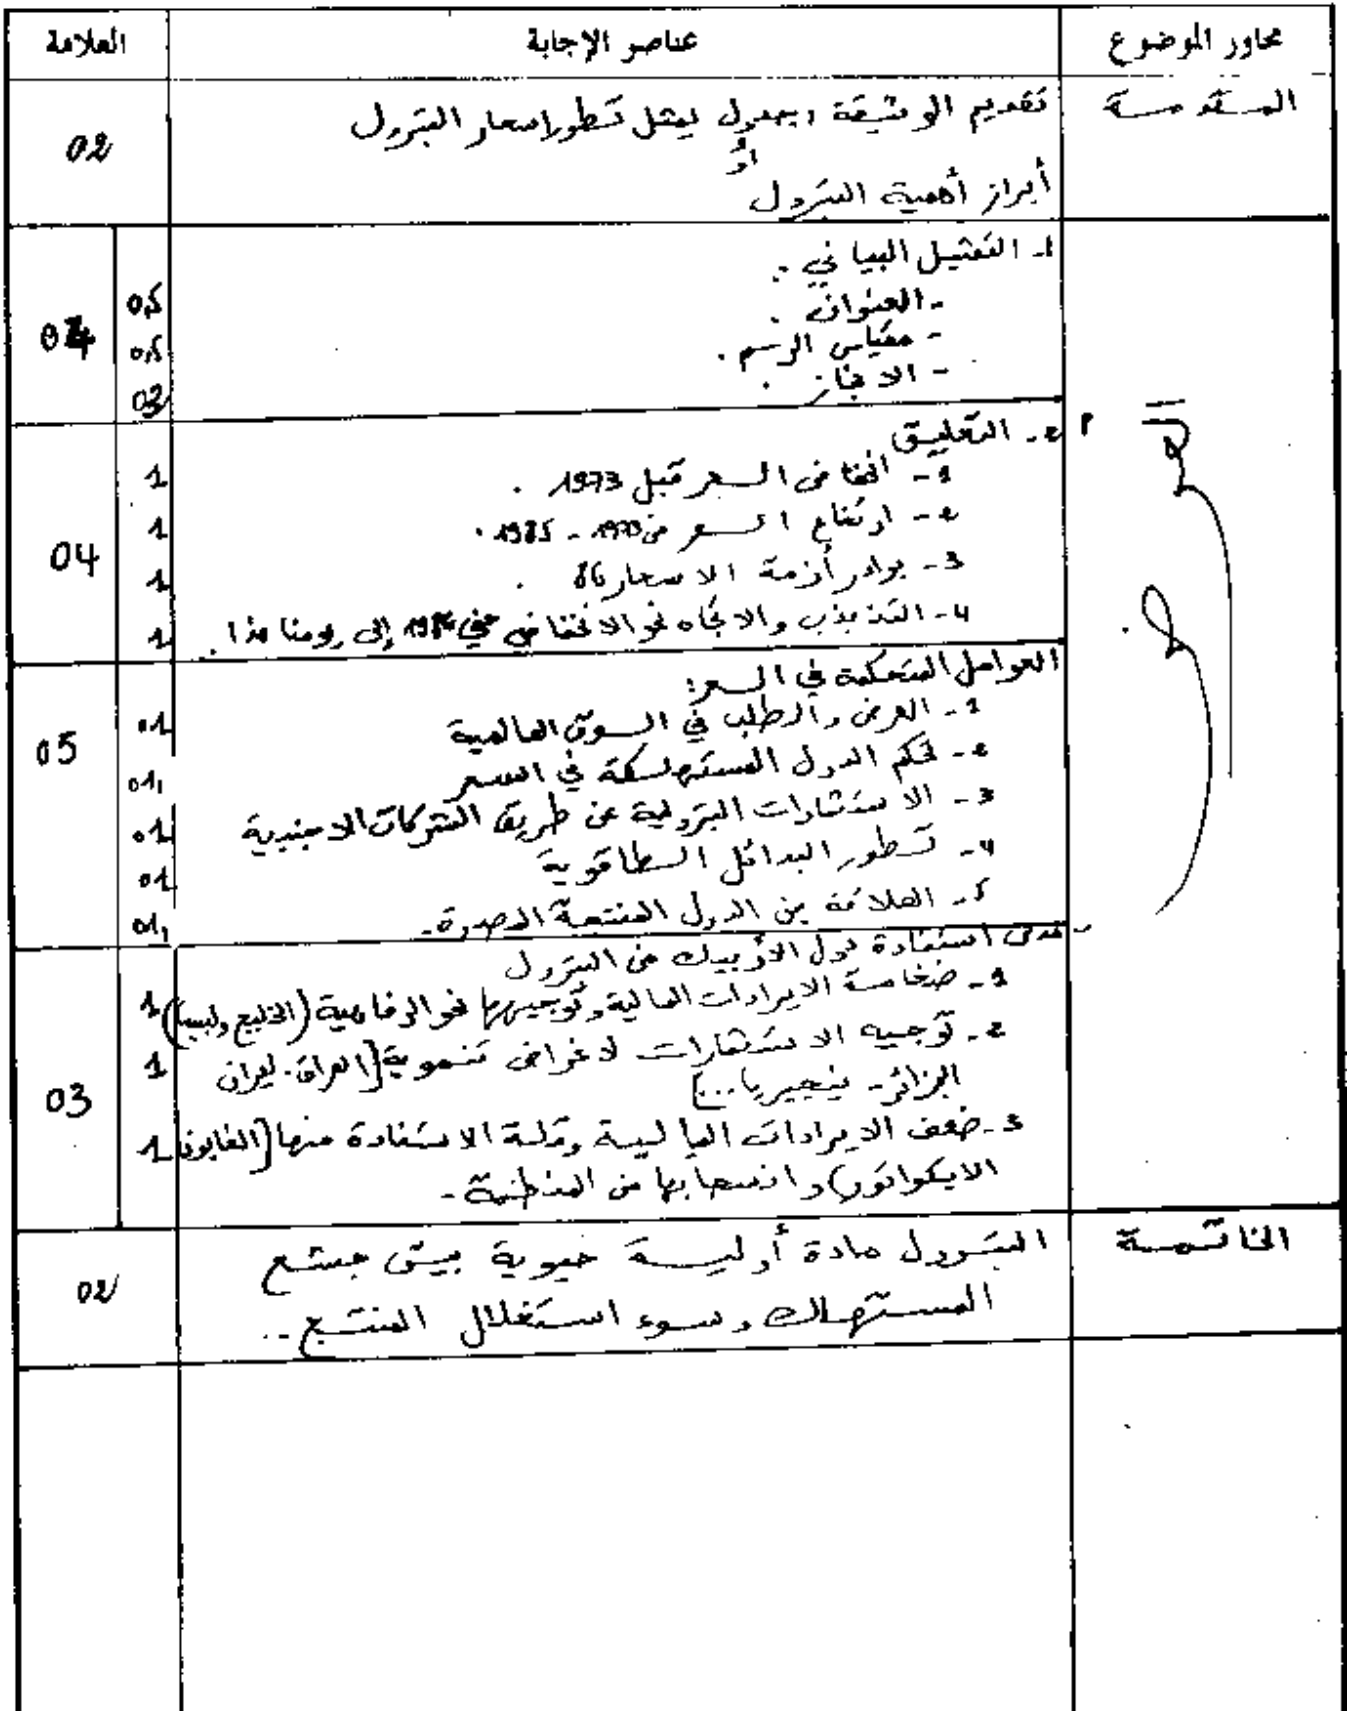 محاور الموضوع عناصر الإجابة العلامة
المقدمة تقديم الوثيقة: جدول يمثل تطور اسعار البترول 02
أو
أبراز أهمية البترول
1- التمثيل البياني: 04
- العنوان. 0,5
- مقياس الرسم. 0,5
- الانجاز. 03
2- التعليق 04
1- انخفاض السعر قبل 1973. 1
2- ارتفاع السعر من 1973 - 1985. 1
3- بوادر أزمة الاسعار 86. 1
4- التذبذب والاتجاه نحو الانخفاض إلى يومنا هذا. 1
العوامل المتحكمة في السعر: 05
1- العرض والطلب في السوق العالمية 01
2- تحكم الدول المستهلكة في السعر 01
3- الاستثمارات البترولية عن طريق الشركات الاجنبية 01
4- تطور البدائل الطاقوية 01
5- العلاقة بين الدول المنتجة المصدرة. 01
- مدى استفادة دول الأوبيك من البترول 03
1- ضخامة الايرادات المالية وتوجيهها نحو الرفاهية (الخليج وليبيا) 1
2- توجيه الاستثمارات لاغراض تنموية [العراق - ايران 1
الجزائر - نيجيريا...]
3- ضعف الايرادات المالية وقلة الاستفادة منها (الغابون 1
الايكوادور) وانسحابها من المنظمة -
الخاتمة البترول مادة أولية حيوية بين جشع 02
المستهلك وسوء استغلال المنتج ..